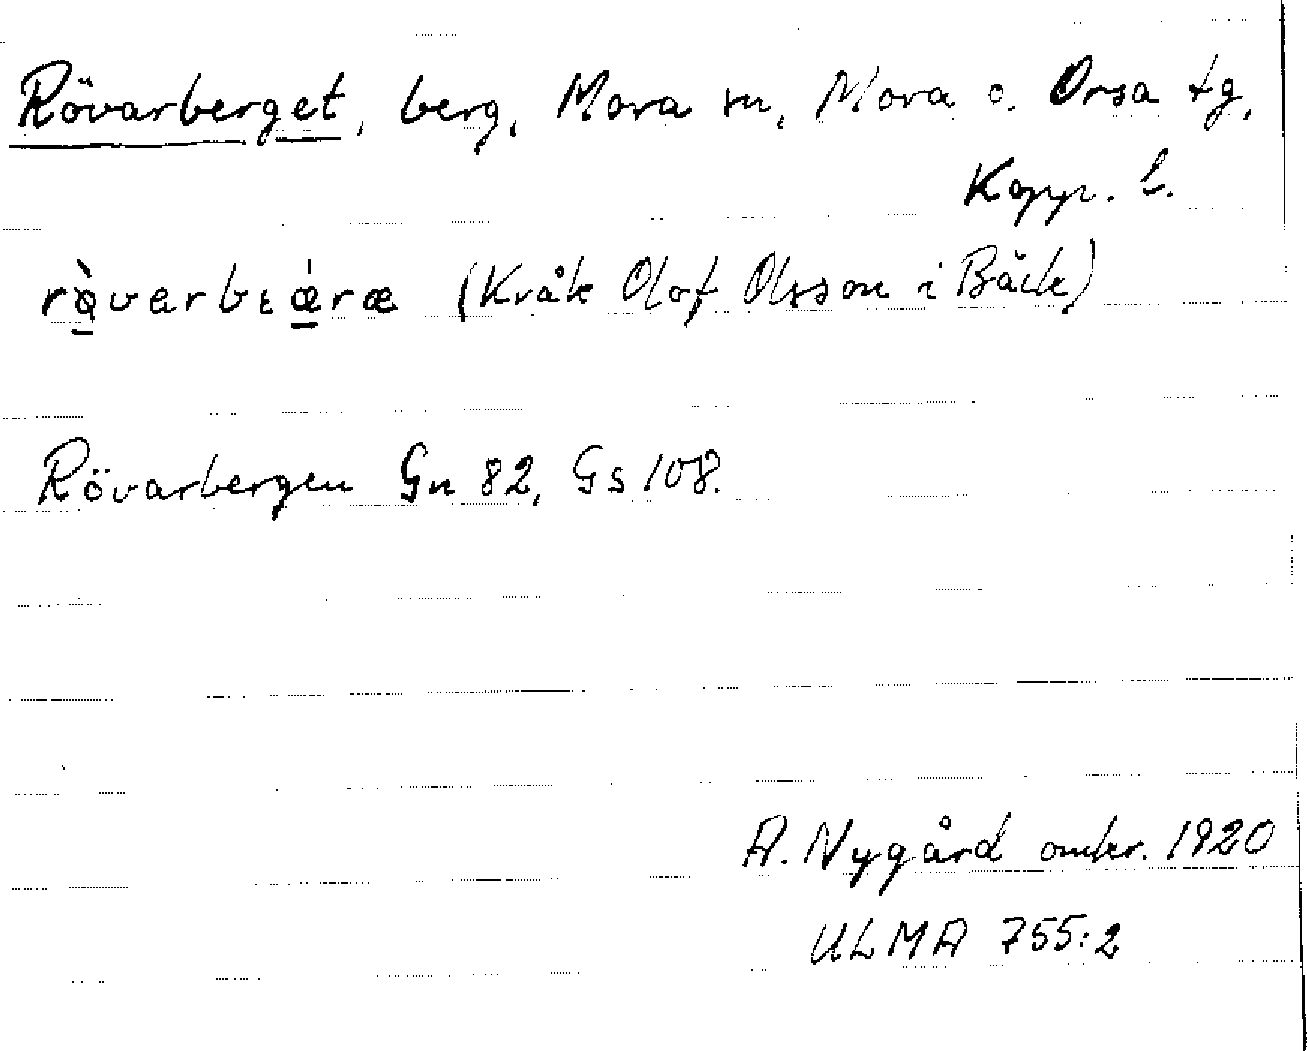 Rövarberget, berg, Mora sn, Mora o. Orsa tg,
Kopp. l.
rə̀varbıǽræ (Kråk Olof Olsson i Bäck)
Rövarbergen Gn 82, Gs 108.
A. Nygård omkr. 1920
ULMA 755:2